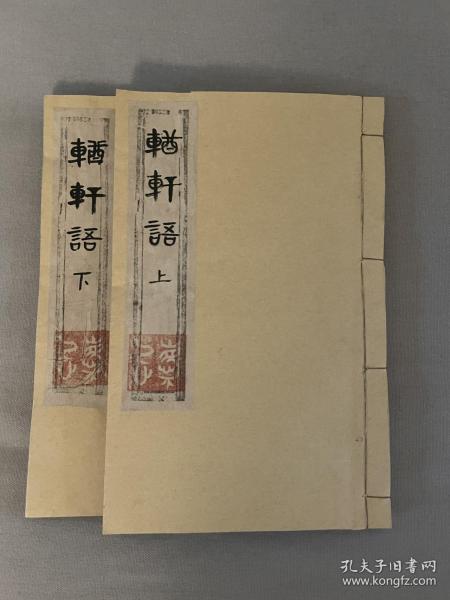 輶軒語
上
輶軒語
下
孔夫子旧书网
www.kongfz.com